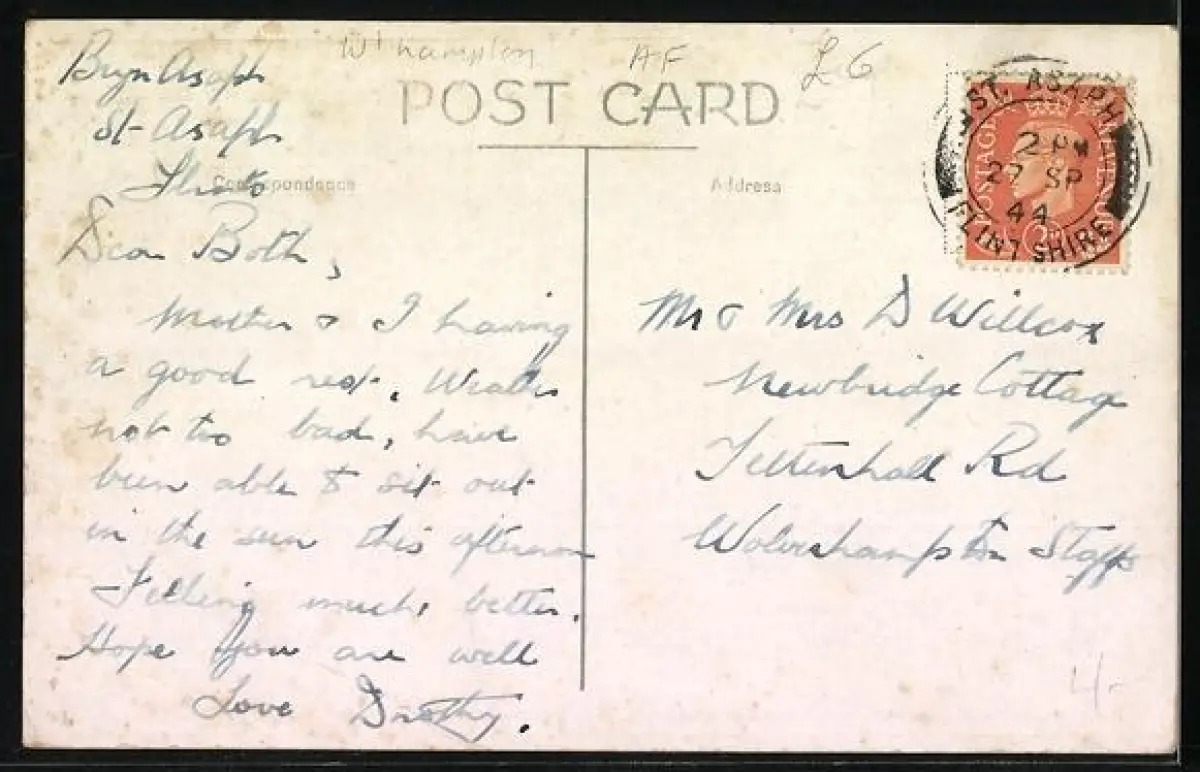 W'hampton AF £6
POST CARD
Correspondence
Address
Bryn Asaph
St Asaph
Dear Both,
Mother & I having
a good rest. Weather
not too bad, have
been able to sit out
in the sun this afternoon
Felling much better.
Hope you are well
Love Dorothy.
ST. ASAPH
2 PM
27 SP
44
FLINTSHIRE
POSTAGE REVENUE
Mr & Mrs D Willcox
Newbridge Cottage
Tettenhall Rd
Wolverhampton Staffs
4-